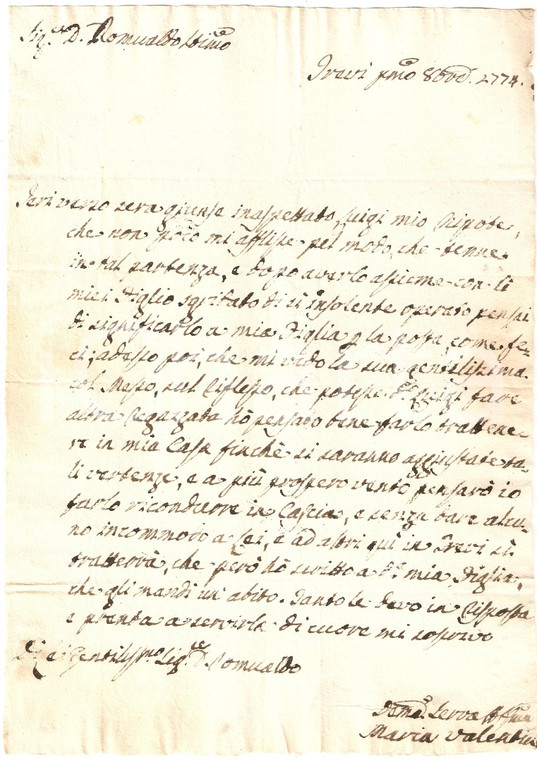 Sig.r D. Romualdo Stimo
Trevi pmo 8bre. 1774.
Jeri verso sera giunse inaspettato Luigi mio Nipote,
che non poco mi afflisse pel modo, che tenne
in tal partenza, e dopo averlo assieme con li
miei Figlio sgridato di sì insolente operato pensai
di significarlo a mia Figlia p la posta, come fe-
ci; adesso poi, che mi vedo la sua gentilissima
col Messo, sul riflesso, che potesse Luigi fare
altra ragazzata hò pensato bene farlo trattene-
re in mia Casa finchè si saranno aggiustate ta-
li vertenze, e a più prospero vento pensarò io
farlo ricondurre in Cascia, e senza dare alcu-
no incommodo a Lei, e ad altri quì in Trevi si
tratterrà, che però hò scritto a mia Figlia,
che gli mandi un abito. Tanto le devo in risposta
e pronta a servirla di cuore mi soscrivo
Di Gentilissmo Sig.re D. Romualdo
Devma Serva
Maria Valentin